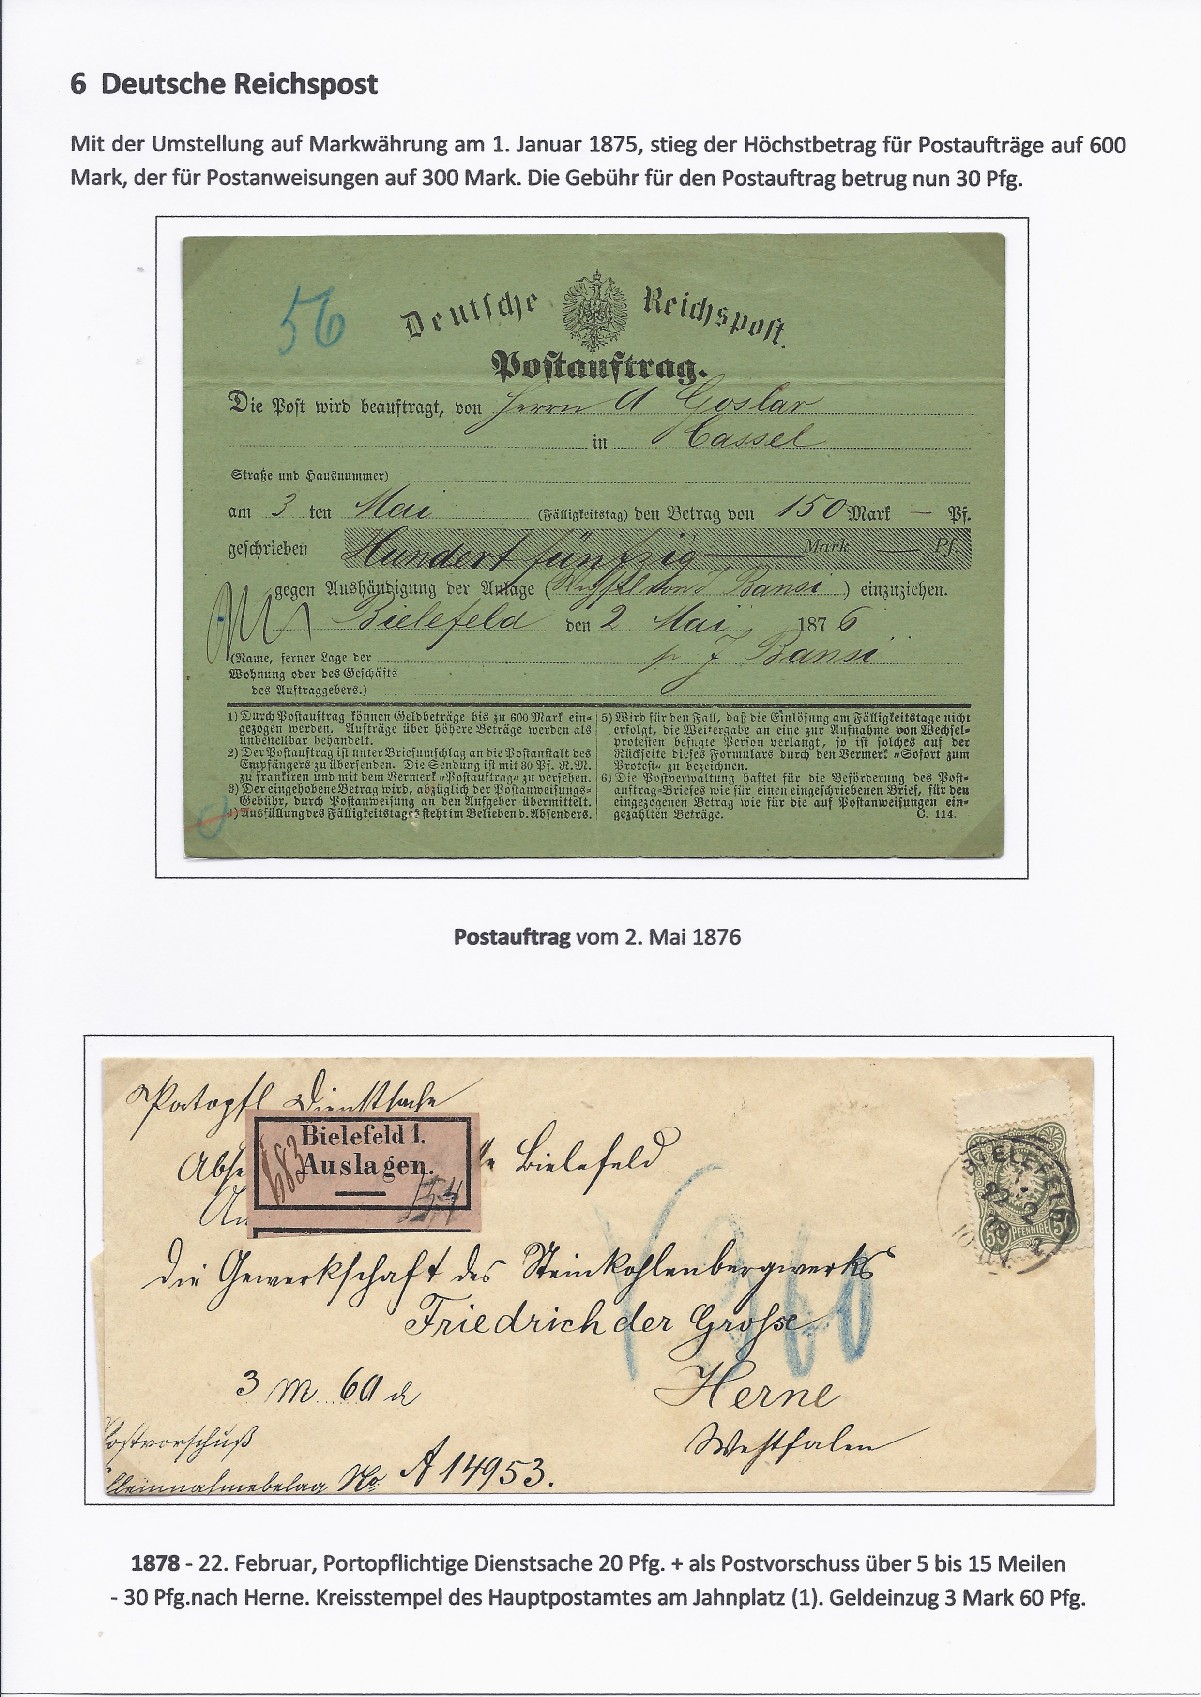 6 Deutsche Reichspost
Mit der Umstellung auf Markwährung am 1. Januar 1875, stieg der Höchstbetrag für Postaufträge auf 600
Mark, der für Postanweisungen auf 300 Mark. Die Gebühr für den Postauftrag betrug nun 30 Pfg.
56
Deutsche Reichspost.
Postauftrag.
Die Post wird beauftragt, von Herrn A Goslar
in Cassel
Straße und Hausnummer)
am 3 ten Mai (Fälligkeitstag) den Betrag von 150 Mark — Pf.
geschrieben Hundert fünfzig Mark — Pf.
gegen Aushändigung der Anlage ( Bansi ) einzuziehen.
Bielefeld den 2 Mai 1876
p J Bansi
(Name, ferner Lage der
Wohnung oder des Geschäfts
des Auftraggebers.)
1) Durch Postauftrag können Geldbeträge bis zu 600 Mark ein-
gezogen werden. Aufträge über höhere Beträge werden als
unbestellbar behandelt.
2) Der Postauftrag ist unter Briefumschlag an die Postanstalt des
Empfängers zu übersenden. Die Sendung ist mit 30 Pf. R.M.
zu frankiren und mit dem Vermerk »Postauftrag« zu versehen.
3) Der eingehobene Betrag wird, abzüglich der Postanweisungs-
Gebühr, durch Postanweisung an den Aufgeber übermittelt.
4) Ausfüllung des Fälligkeitstages steht im Belieben d. Absenders.
5) Wird für den Fall, daß die Einlösung am Fälligkeitstage nicht
erfolgt, die Weitergabe an eine zur Aufnahme von Wechsel-
protesten befugte Person verlangt, so ist solches auf der
Rückseite dieses Formulars durch den Vermerk »Sofort zum
Protest« zu bezeichnen.
6) Die Postverwaltung haftet für die Beförderung des Post-
auftrag-Briefes wie für einen eingeschriebenen Brief, für den
eingezogenen Betrag wie für die auf Postanweisungen ein-
gezahlten Beträge.
C. 114.
Postauftrag vom 2. Mai 1876
Portopfl Dienstsache
Bielefeld 1.
Auslagen.
683
Bielefeld
BIELEFELD
22 2
78
50 PFENNIGE 50
die Gewerkschaft des Steinkohlenbergwerks
Friedrich der Grosse
360
3 M 60
Herne
Westfalen
Postvorschuß
No A 14953.
1878 - 22. Februar, Portopflichtige Dienstsache 20 Pfg. + als Postvorschuss über 5 bis 15 Meilen
- 30 Pfg.nach Herne. Kreisstempel des Hauptpostamtes am Jahnplatz (1). Geldeinzug 3 Mark 60 Pfg.